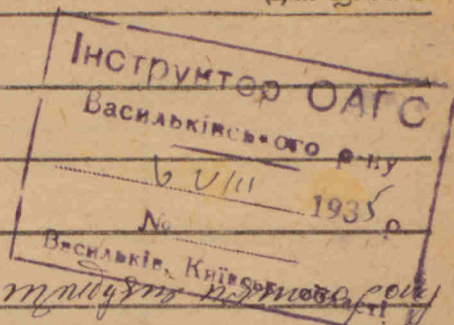 Інструктор ОАГС
Васильківського р-ну
6 VIII 1935 р.
№
Васильків, Київської області